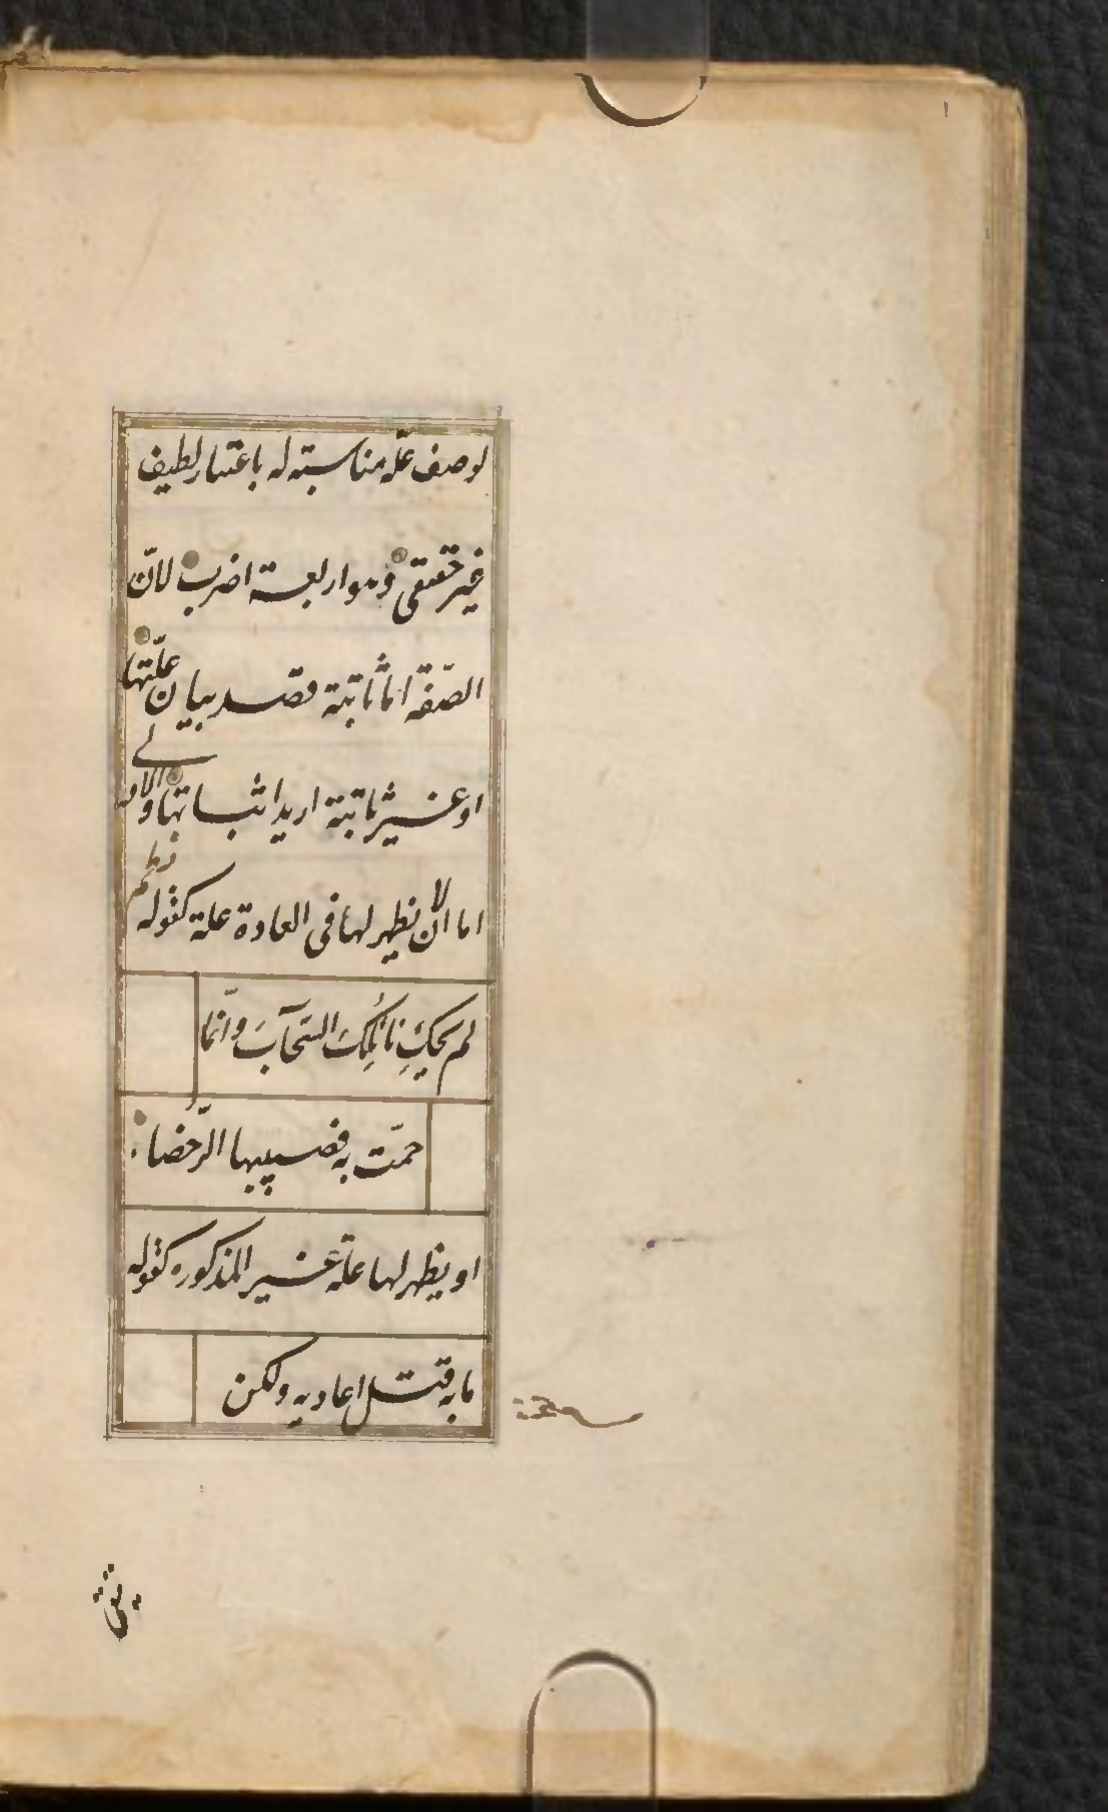 لوصف علّة مناسبته له باعتبار لطيف
غير حقيقى وهو اربعة اضرب لانّ
الصّفة اما ثابتة قصد بيان علّتها
او غير ثابتة اريد اثباتها والاولى
اما ان لا يظهر لها فى العادة علة كقوله نظم
لم يَحْكِ نائلَكَ السّحابَ وانّما
حمّت به فصبيبها الرّحضاء
او يظهر لها علّة غير المذكوره كقوله
ما به قتل اعاديه ولكن
يتقى